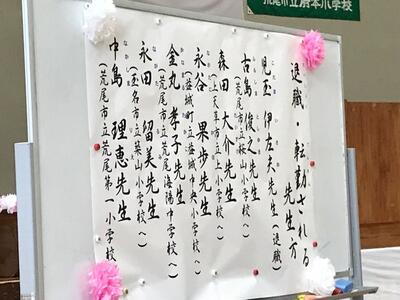 荒尾市立清里小学校
退職・転勤される
先生方
児玉 伊左夫先生(退職)
古島 俊之先生
(荒尾市立桜山小学校へ)
森田 大介先生
(上天草市立上小学校へ)
永谷 果歩先生
(益城町立益城中央小学校へ)
金丸 孝子先生
(荒尾市立荒尾海陽中学校へ)
永田 留美先生
(玉名市立築山小学校へ)
中島 理恵先生
(荒尾市立荒尾第一小学校へ)